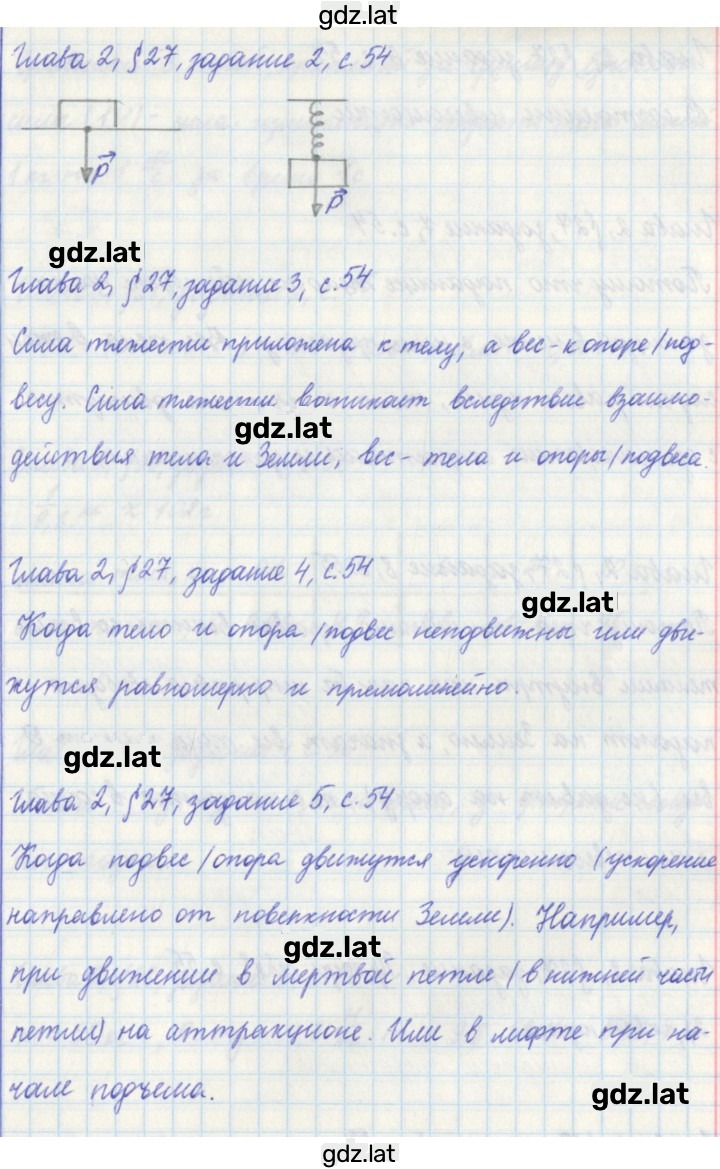 gdz.lat
Глава 2, § 27, задание 2, с. 54
P P
gdz.lat
Глава 2, § 27, задание 3, с. 54
Сила тяжести приложена к телу, а вес - к опоре/под-
весу. Сила тяжести возникает вследствие взаимо-
gdz.lat
действия тела и Земли, вес - тела и опоры/подвеса.
Глава 2, § 27, задание 4, с. 54
gdz.lat
Когда тело и опора/подвес неподвижны или дви-
жутся равномерно и прямолинейно.
gdz.lat
Глава 2, § 27, задание 5, с. 54
Когда подвес/опора движутся ускоренно (ускорение
направлено от поверхности Земли). Например,
gdz.lat
при движении в мертвой петле (в нижней части
петли) на аттракционе. Или в лифте при на-
чале подъема.
gdz.lat
gdz.lat